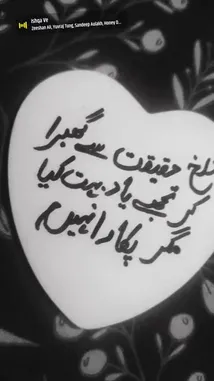 Ishqa Ve
Zeeshan Ali, Yuvraj Tung, Sandeep Aulakh, Honey D...
تلخ حقیقت سے گھبرا
کر تجھے یاد بہت کیا
مگر پکارا نہیں